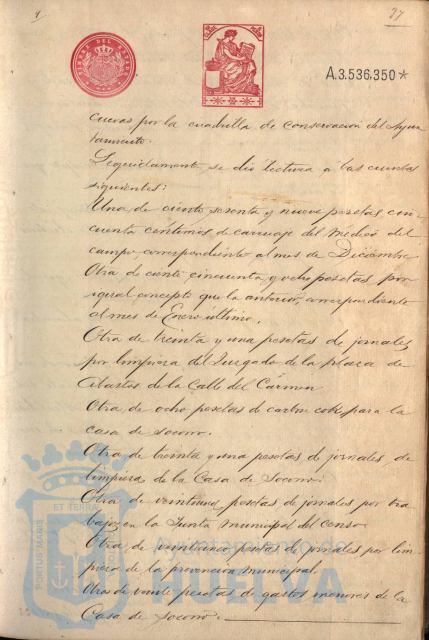 37
A.3.536,350*
cuevas por la cuadrilla de conservación del Ayun
tamiento.
Seguidamente se dió lectura á las cuentas
siguientes:
Una de ciento sesenta y nueve pesetas cin
cuenta centimos de carruaje del médico del
campo, correspondiente al mes de Diciembre
Otra de ciento cincuenta y ocho pesetas por
igual concepto que la anterior, correspondiente
al mes de Enero último.
Otra de treinta y una pesetas de jornales
por limpieza del Juzgado de la plaza de
Abastos de la Calle del Carmen
Otra de ocho pesetas de carbón cok para la
casa de socorro.
Otra de treinta y una pesetas de jornales de
limpieza de la Casa de Socorro.
Otra de veintiuna pesetas de jornales por tra
bajos en la Junta municipal del censo
Otra de veintiuna pesetas de jornales por lim
pieza de la prevención municipal.
Otra de veinte pesetas de gastos menores de la
Casa de Socorro.
PORTUS MARIS ET TERRAE
Ayuntamiento de
HUELVA